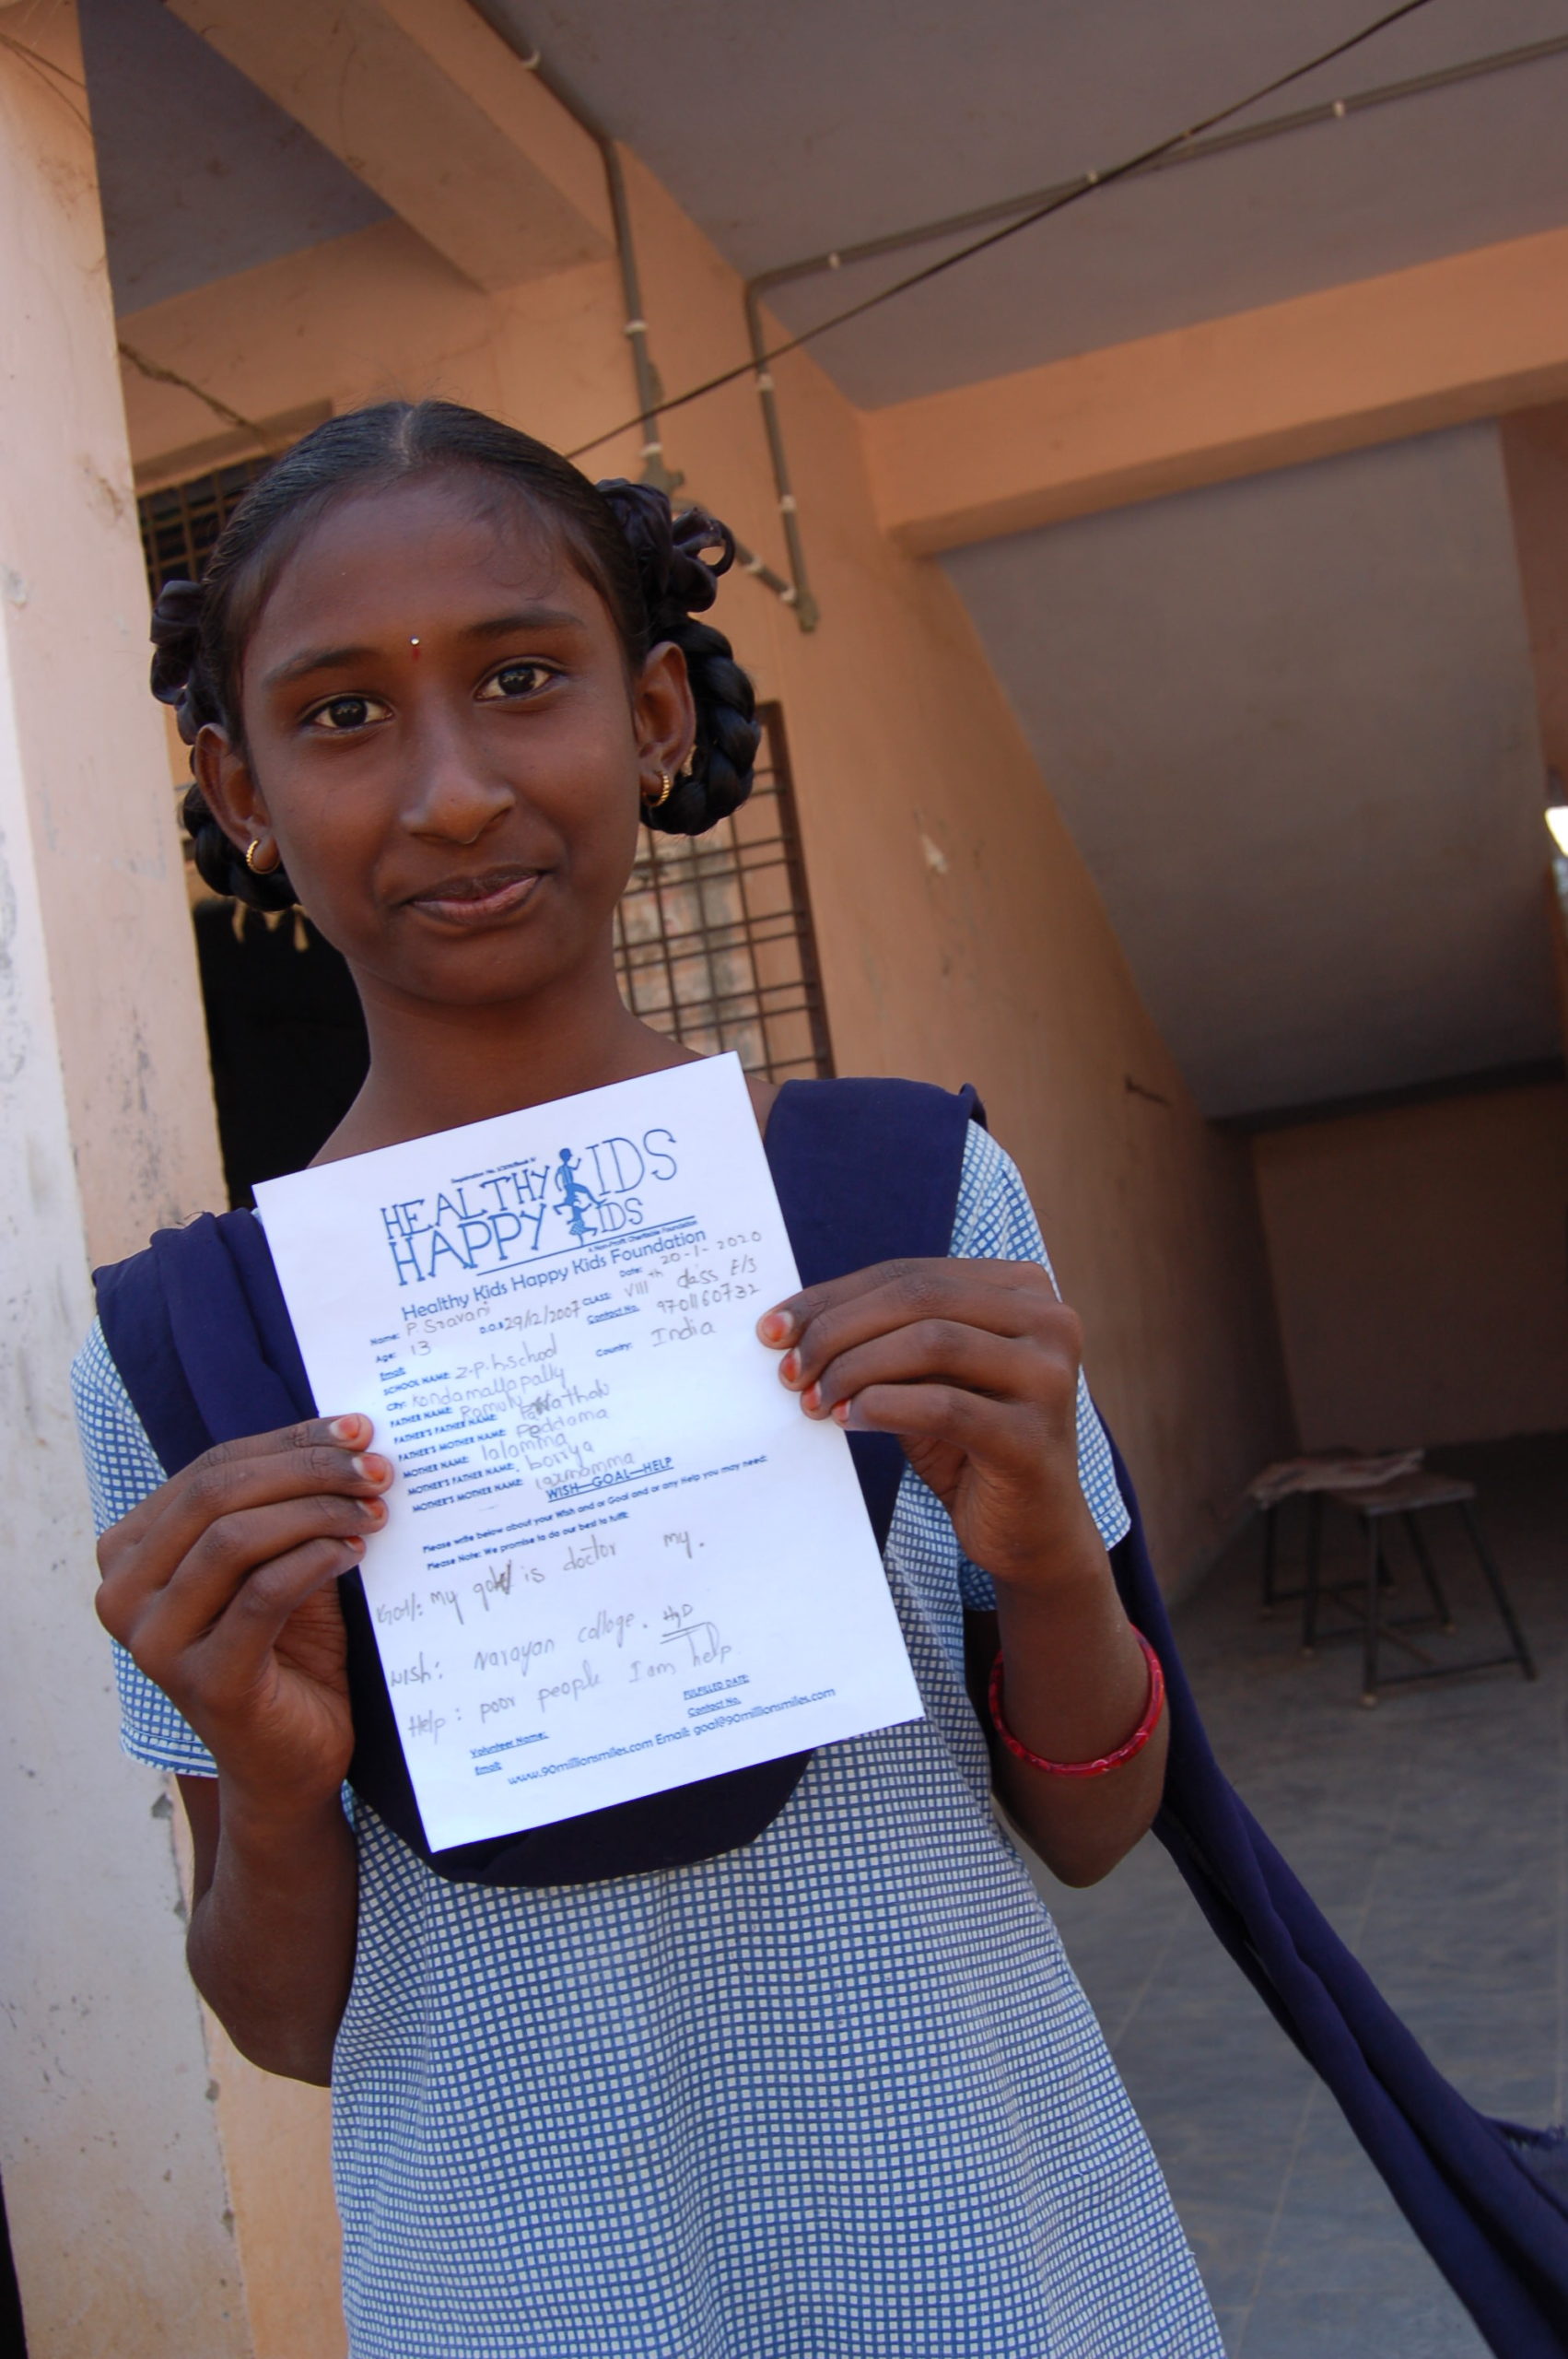 HEALTHY KIDS
HAPPY KIDS
A Non-Profit Charitable Foundation
Healthy Kids Happy Kids Foundation
Date: 20-1-2020
Name: P. Sravani D.O.B 29/12/2007 CLASS: VIIIth class E/S
Age: 13 Contact No. 9701160732
Email: Country: India
SCHOOL NAME: Z.P.h.school
City: Kondamallapally
FATHER NAME: Ramulu
FATHER'S FATHER NAME:
FATHER'S MOTHER NAME: Peddama
MOTHER NAME: lalamma
MOTHER'S FATHER NAME: borrya
MOTHER'S MOTHER NAME: laxmamma
WISH—GOAL—HELP
Please write below about your Wish and or Goal and or any Help you may need:
Please Note: We promise to do our best to fulfil:
my is doctor my.
wish: Narayan collage. HyD
Help: poor people I am help
FULFILLED DATE:
Volunteer Name: Contact No.
Email:
www.90millionsmiles.com Email: goal@90millionsmiles.com